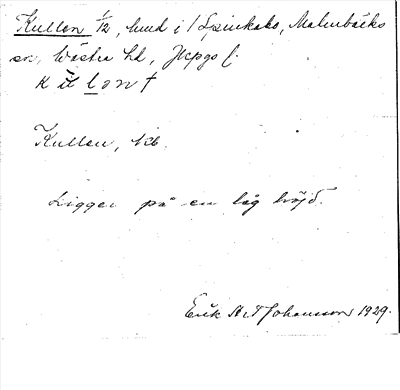 Kullen 1/2, hmd i / Spinkabo, Malmbäcks
sn, Västra hd, Jkpgs l.
Kullen,
Ligger på en låg höjd.
Erik Johansson 1929.